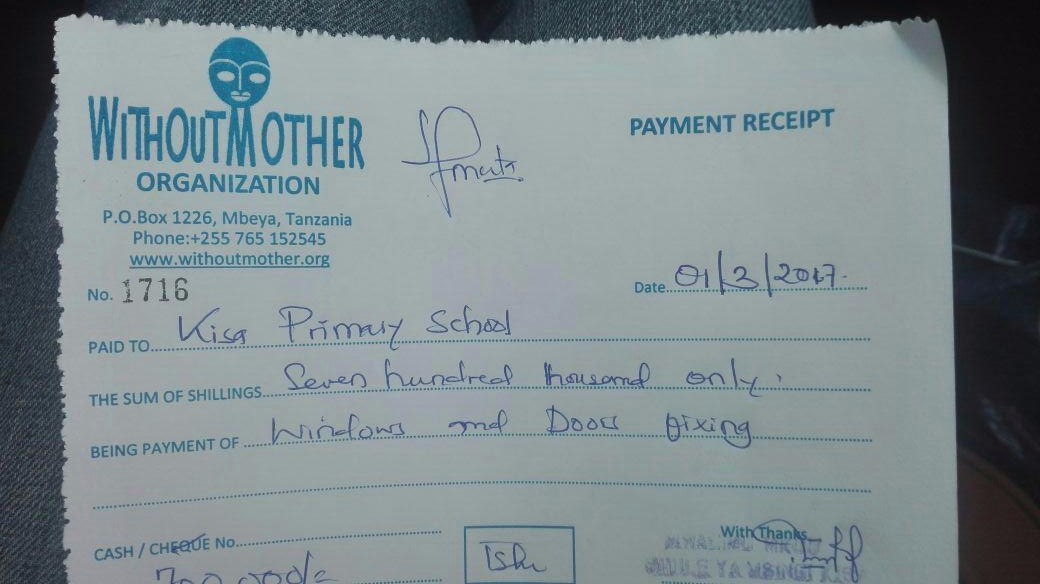 WITHOUTMOTHER
ORGANIZATION
P.O.Box 1226, Mbeya, Tanzania
Phone:+255 765 152545
www.withoutmother.org
PAYMENT RECEIPT
No. 1716
Date 01/3/2017.
PAID TO Kisa Primary School
THE SUM OF SHILLINGS Seven hundred thousand only.
BEING PAYMENT OF Windows and Doors fixing
CASH / CHEQUE No.
With Thanks
Tsh
MWALIMU MKUU
SHULE YA MSINGI